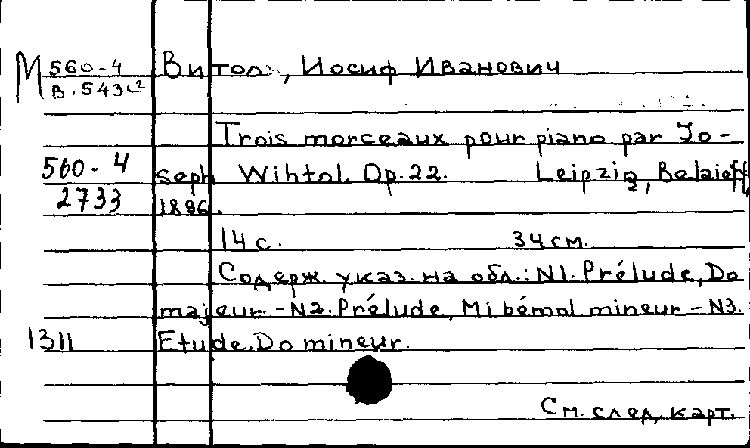 М 560-4 Витол, Иосиф Иванович
В.543
Trois morceaux pour piano par Jo-
560-4 seph Wihtol. Op.22. Leipzig, Belaieff,
2733 1896.
14 с. 34 см.
Содерж. указ. на обл.: N1. Prélude, Do
majeur - N2. Prélude, Mi bémol mineur - N3.
1311 Etude. Do mineur.
См. след, карт.